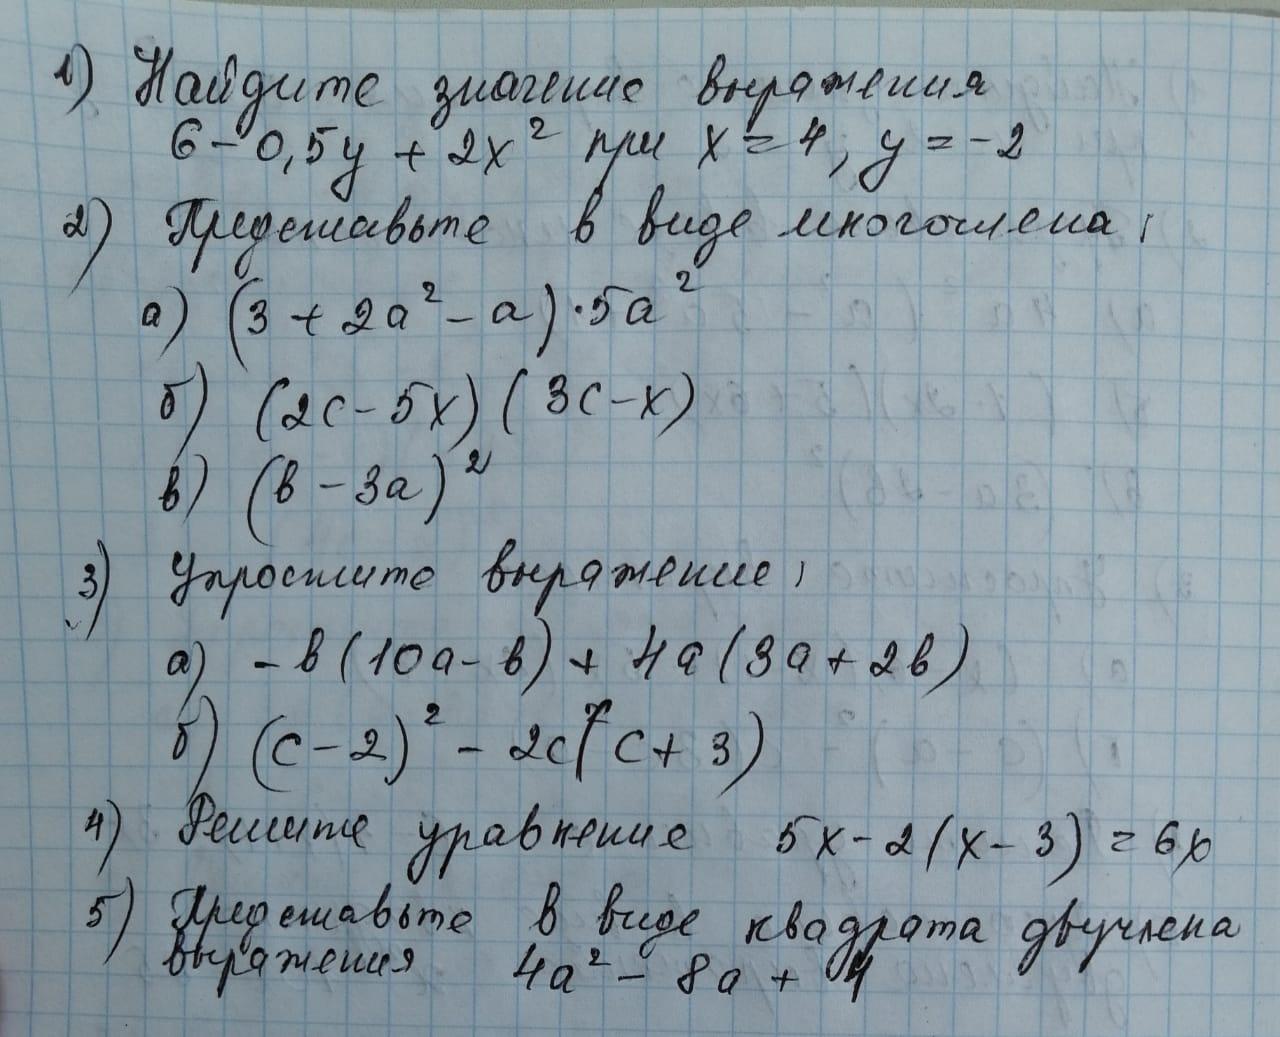 1) Найдите значение выражения
6 - 0,5y + 2x² при x = 4, y = -2
2) Представьте в виде многочлена:
а) (3 + 2a² - a) · 5a²
б) (2c - 5x)(3c - x)
в) (b - 3a)²
3) Упростите выражение:
а) -b(10a - b) + 4a(3a + 2b)
б) (c - 2)² - 2c(c + 3)
4) Решите уравнение 5x - 2(x - 3) = 6x
5) Представьте в виде квадрата двучлена
выражения 4a² - 8a + 4